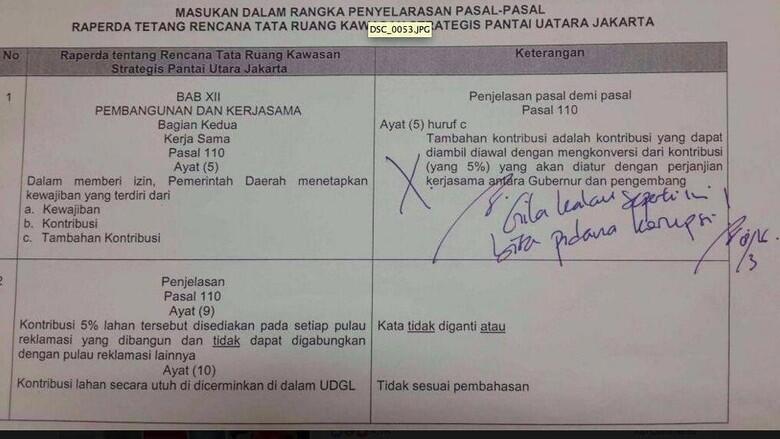 MASUKAN DALAM RANGKA PENYELARASAN PASAL-PASAL
RAPERDA TETANG RENCANA TATA RUANG KAW STRATEGIS PANTAI UATARA JAKARTA
DSC_0053.JPG
No
Raperda tentang Rencana Tata Ruang Kawasan
Strategis Pantai Utara Jakarta
Keterangan
1
BAB XII
PEMBANGUNAN DAN KERJASAMA
Bagian Kedua
Kerja Sama
Pasal 110
Ayat (5)
Dalam memberi izin, Pemerintah Daerah menetapkan
kewajiban yang terdiri dari
a. Kewajiban
b. Kontribusi
c. Tambahan Kontribusi
Penjelasan pasal demi pasal
Pasal 110
Ayat (5) huruf c
Tambahan kontribusi adalah kontribusi yang dapat
diambil diawal dengan mengkonversi dari kontribusi
(yang 5%) yang akan diatur dengan perjanjian
kerjasama antara Gubernur dan pengembang
Gila kalau seperti ini
bisa pidana korupsi
2
Penjelasan
Pasal 110
Ayat (9)
Kontribusi 5% lahan tersebut disediakan pada setiap pulau
reklamasi yang dibangun dan tidak dapat digabungkan
dengan pulau reklamasi lainnya
Ayat (10)
Kontribusi lahan secara utuh di dicerminkan di dalam UDGL
Kata tidak diganti atau
Tidak sesuai pembahasan